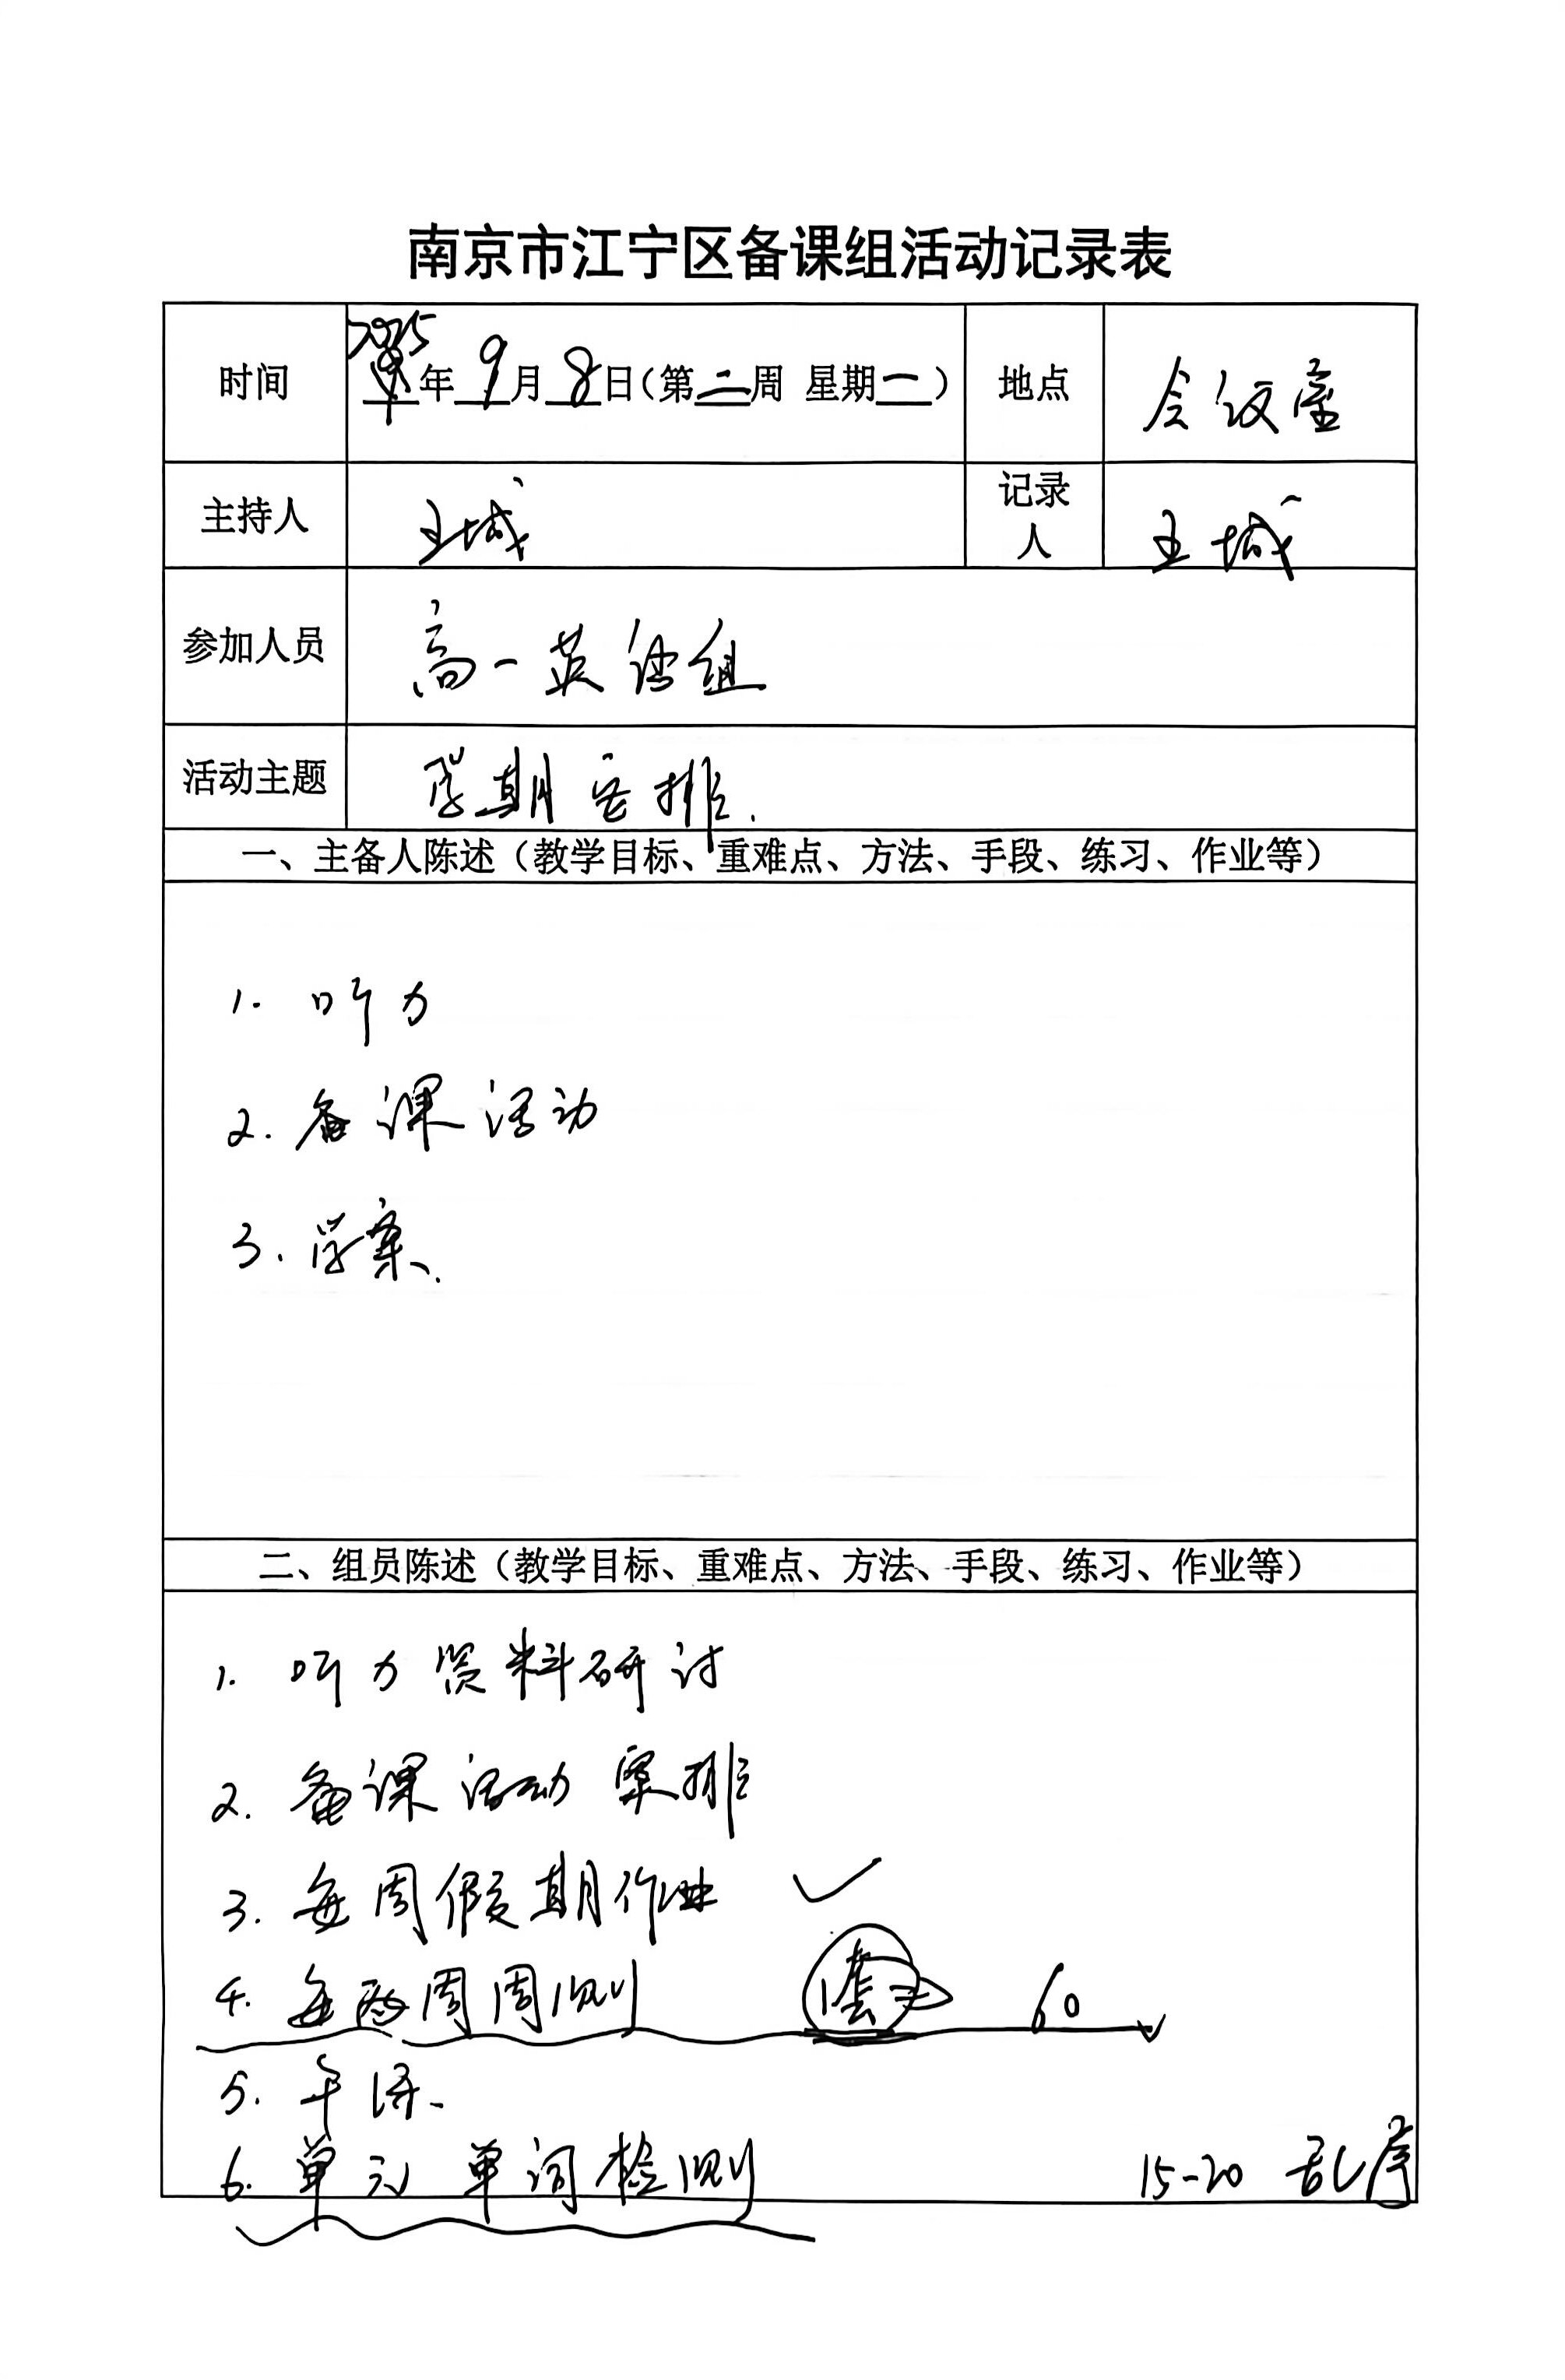 南京市江宁区备课组活动记录表
时间 2025年9月8日(第二周 星期一) 地点 会议室
主持人 王城 记录人 王城
参加人员 高一英语组
活动主题 学期安排.
一、主备人陈述(教学目标、重难点、方法、手段、练习、作业等)
1. 听力
2. 备课活动
3. 学案.
二、组员陈述(教学目标、重难点、方法、手段、练习、作业等)
1. 听力资料研讨
2. 备课活动安排
3. 每周假期作业 ✓
4. 每两周周测 60
5. 早读.
6. 单元单词检测 15-20 乱序